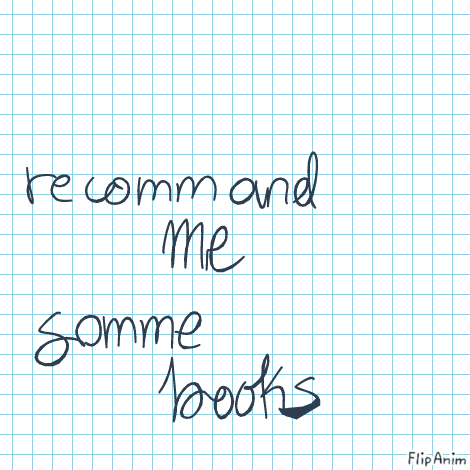 recommand
me
somme
books
FlipAnim